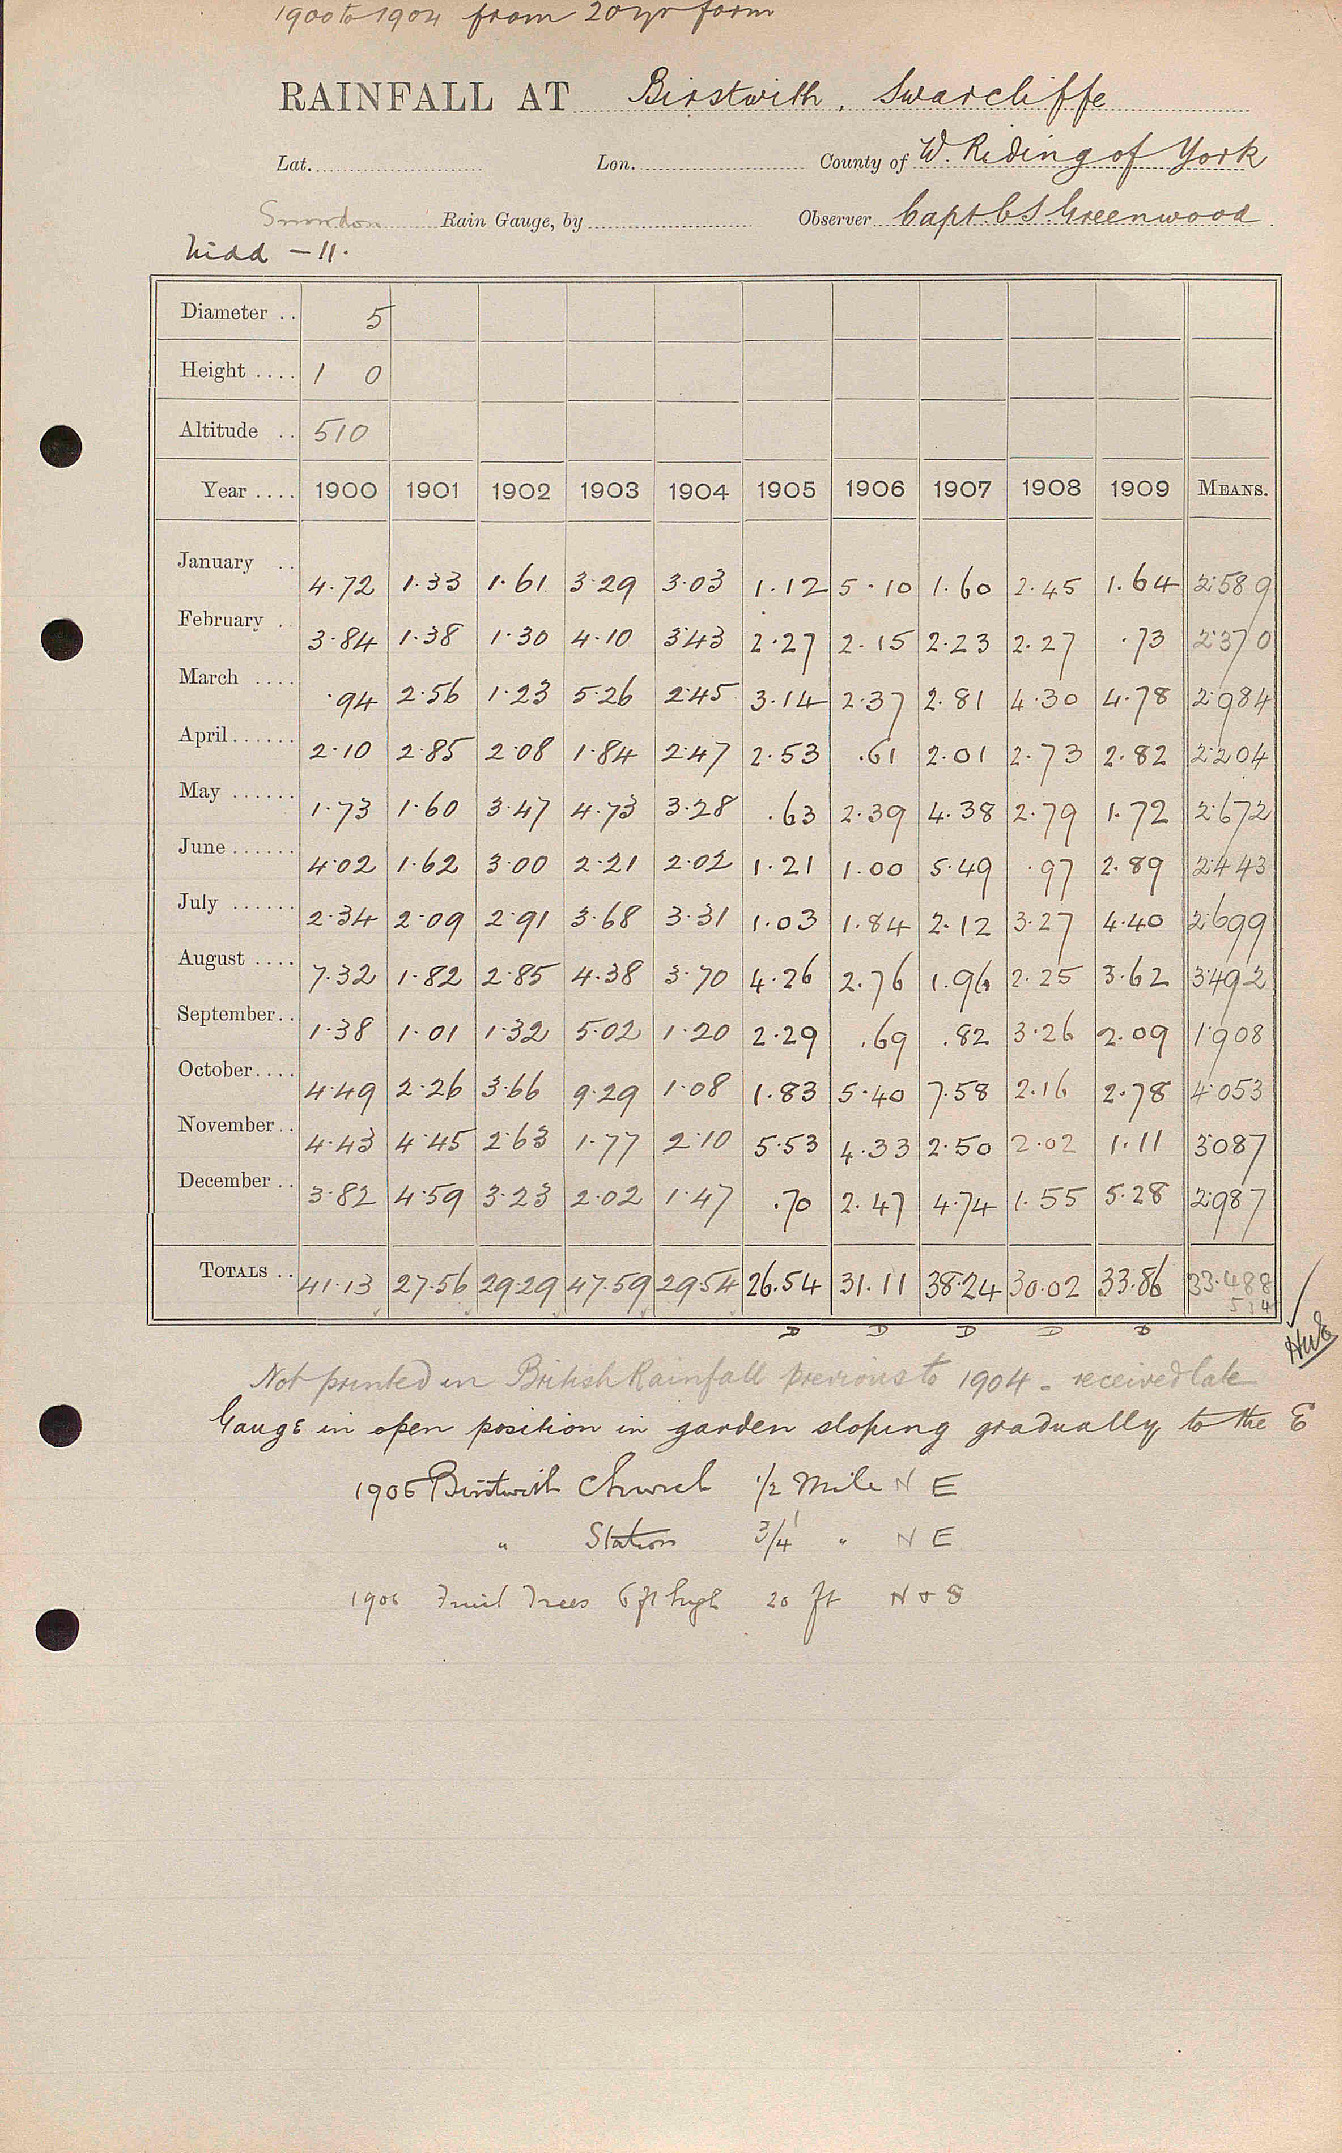 1900 to 1904 from 20 yr form
RAINFALL AT Birstwith, Swarcliffe
Lat. Lon. County of W. Riding of York
Snowdon Rain Gauge, by Observer Capt. C S Greenwood
Nidd – 11.
Diameter .. 5
Height .... 1 0
Altitude .. 510
Year .... 1900 1901 1902 1903 1904 1905 1906 1907 1908 1909 MEANS.
January .. 4.72 1.33 1.61 3.29 3.03 1.12 5.10 1.60 2.45 1.64 2.589
February . 3.84 1.38 1.30 4.10 3.43 2.27 2.15 2.23 2.27 .73 2.370
March .... .94 2.56 1.23 5.26 2.45 3.14 2.37 2.81 4.30 4.78 2.984
April...... 2.10 2.85 2.08 1.84 2.47 2.53 .61 2.01 2.73 2.82 2.204
May ...... 1.73 1.60 3.47 4.73 3.28 .63 2.39 4.38 2.79 1.72 2.672
June...... 4.02 1.62 3.00 2.21 2.02 1.21 1.00 5.49 .97 2.89 2.443
July ...... 2.34 2.09 2.91 3.68 3.31 1.03 1.84 2.12 3.27 4.40 2.699
August .... 7.32 1.82 2.85 4.38 3.70 4.26 2.76 1.96 2.25 3.62 3.492
September.. 1.38 1.01 1.32 5.02 1.20 2.29 .69 .82 3.26 2.09 1.908
October.... 4.49 2.26 3.66 9.29 1.08 1.83 5.40 7.58 2.16 2.78 4.053
November.. 4.43 4.45 2.63 1.77 2.10 5.53 4.33 2.50 2.02 1.11 3.087
December .. 3.82 4.59 3.23 2.02 1.47 .70 2.47 4.74 1.55 5.28 2.987
TOTALS .. 41.13 27.56 29.29 47.59 29.54 26.54 31.11 38.24 30.02 33.86 33.488
D D D D D
Not printed in British Rainfall previous to 1904 – received late
Gauge in open position in garden sloping gradually to the E
1906 Birstwith Church 1/2 Mile N E
" Station 3/4 " N E
1906 Fruit Trees 6 ft high 20 ft N + S